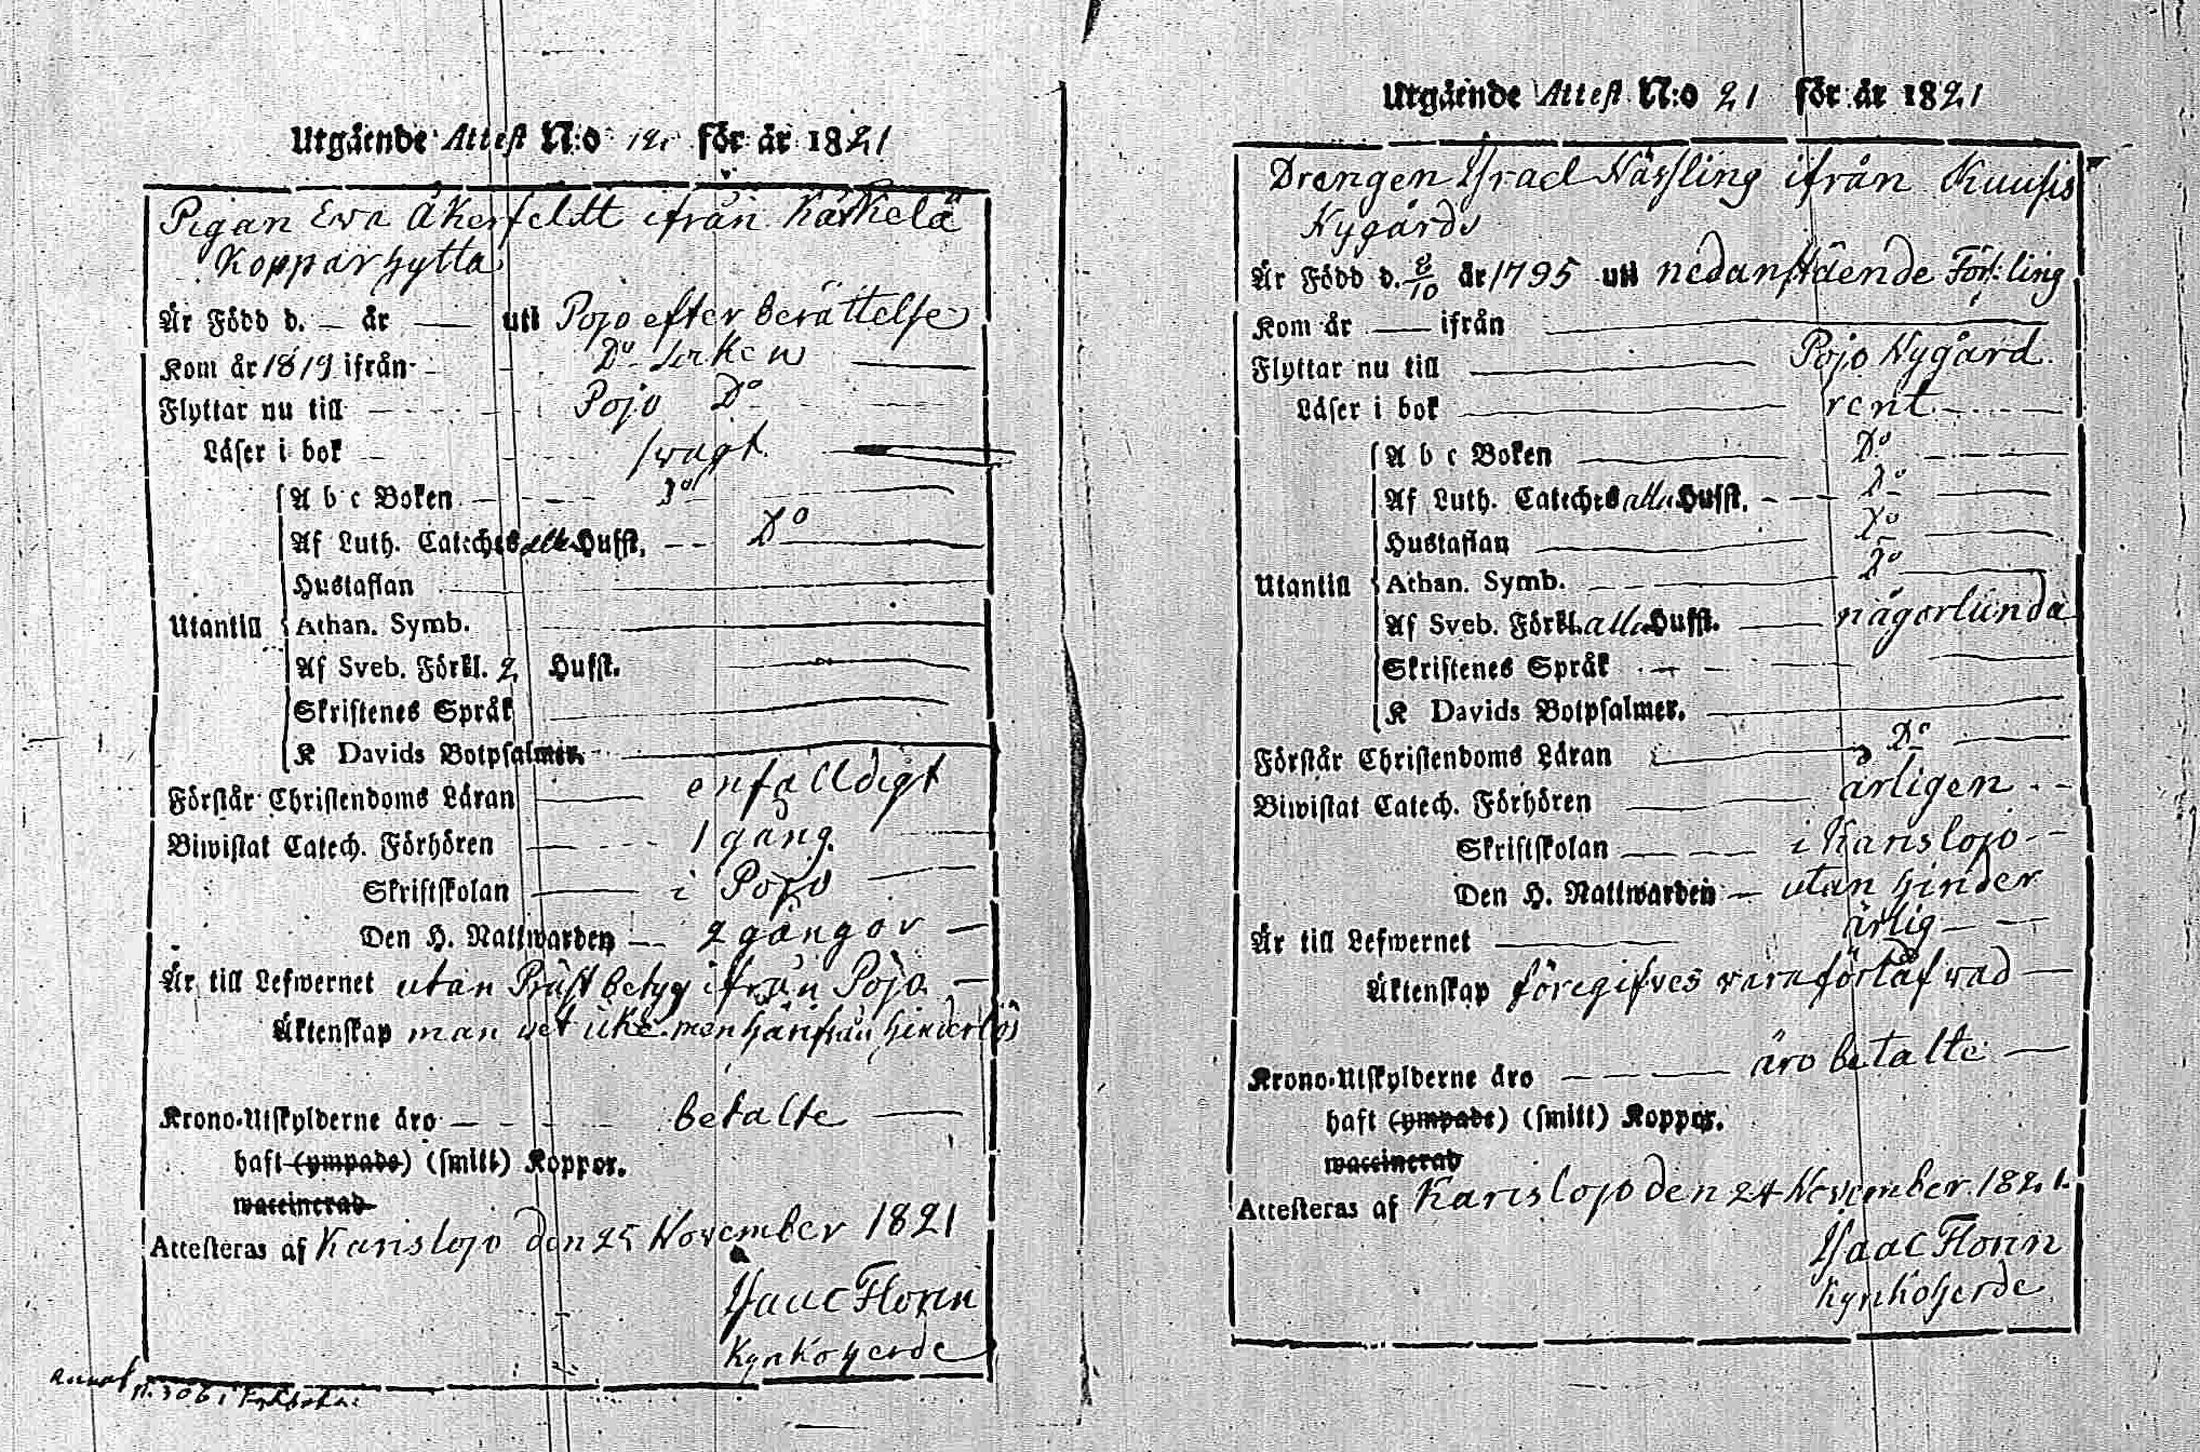 Utgående Attest N:o för år 1821
Pigan Eva Åkerfeldt ifrån Kärkelä
Kopparhytta
Är Född d. — år — uti Pojo efter berättelse
Kom år 1819 ifrån D:o Socken
Flyttar nu till Pojo D:o
Läser i bok svagt
A b c Boken D:o
Af Luth. Catechés alla Hufst. D:o
Hustaflan
Utantill Athan. Symb.
Af Sveb. Förkl. 2 Hufst.
Skriftenes Språk
K Davids Botpsalmer.
Förstår Christendoms Läran enfalldigt
Biwistat Catech. Förhören 1 gång.
Skriftskolan i Pojo
Den H. Nattwarden 2 gångor
Är till Lefwernet utan Prästbetyg ifrån Pojo
Äktenskap man vet icke men härifrån hinderlös
Krono-Utskylderne äro betalte
haft (ympade) (smitt) Koppor.
waccinerad
Attesteras af Karislojo den 25 November 1821
Isaac Florin
Kyrkoherde
Utgående Attest N:o 21 för år 1821
Drengen Israel Hässling ifrån Kuusis
Nygårds
Är Född d. 8/10 år 1795 uti nedanstående Förs:ling
Kom år — ifrån
Flyttar nu till Pojo Nygård
Läser i bok rent
A b c Boken D:o
Af Luth. Catechés alla Hufst. D:o
Hustaflan D:o
Utantill Athan. Symb. D:o
Af Sveb. Förkl. alla Hufst. någorlunda
Skriftenes Språk
K Davids Botpsalmer.
Förstår Christendoms Läran D:o
Biwistat Catech. Förhören årligen
Skriftskolan i Karislojo
Den H. Nattwarden utan hinder
Är till Lefwernet ärlig
Äktenskap föregifves vara förlåfvad
Krono-Utskylderne äro äro betalte
haft (ympade) (smitt) Koppor.
waccinerad
Attesteras af Karislojo den 24 November 1821.
Isaac Florin
Kyrkoherde